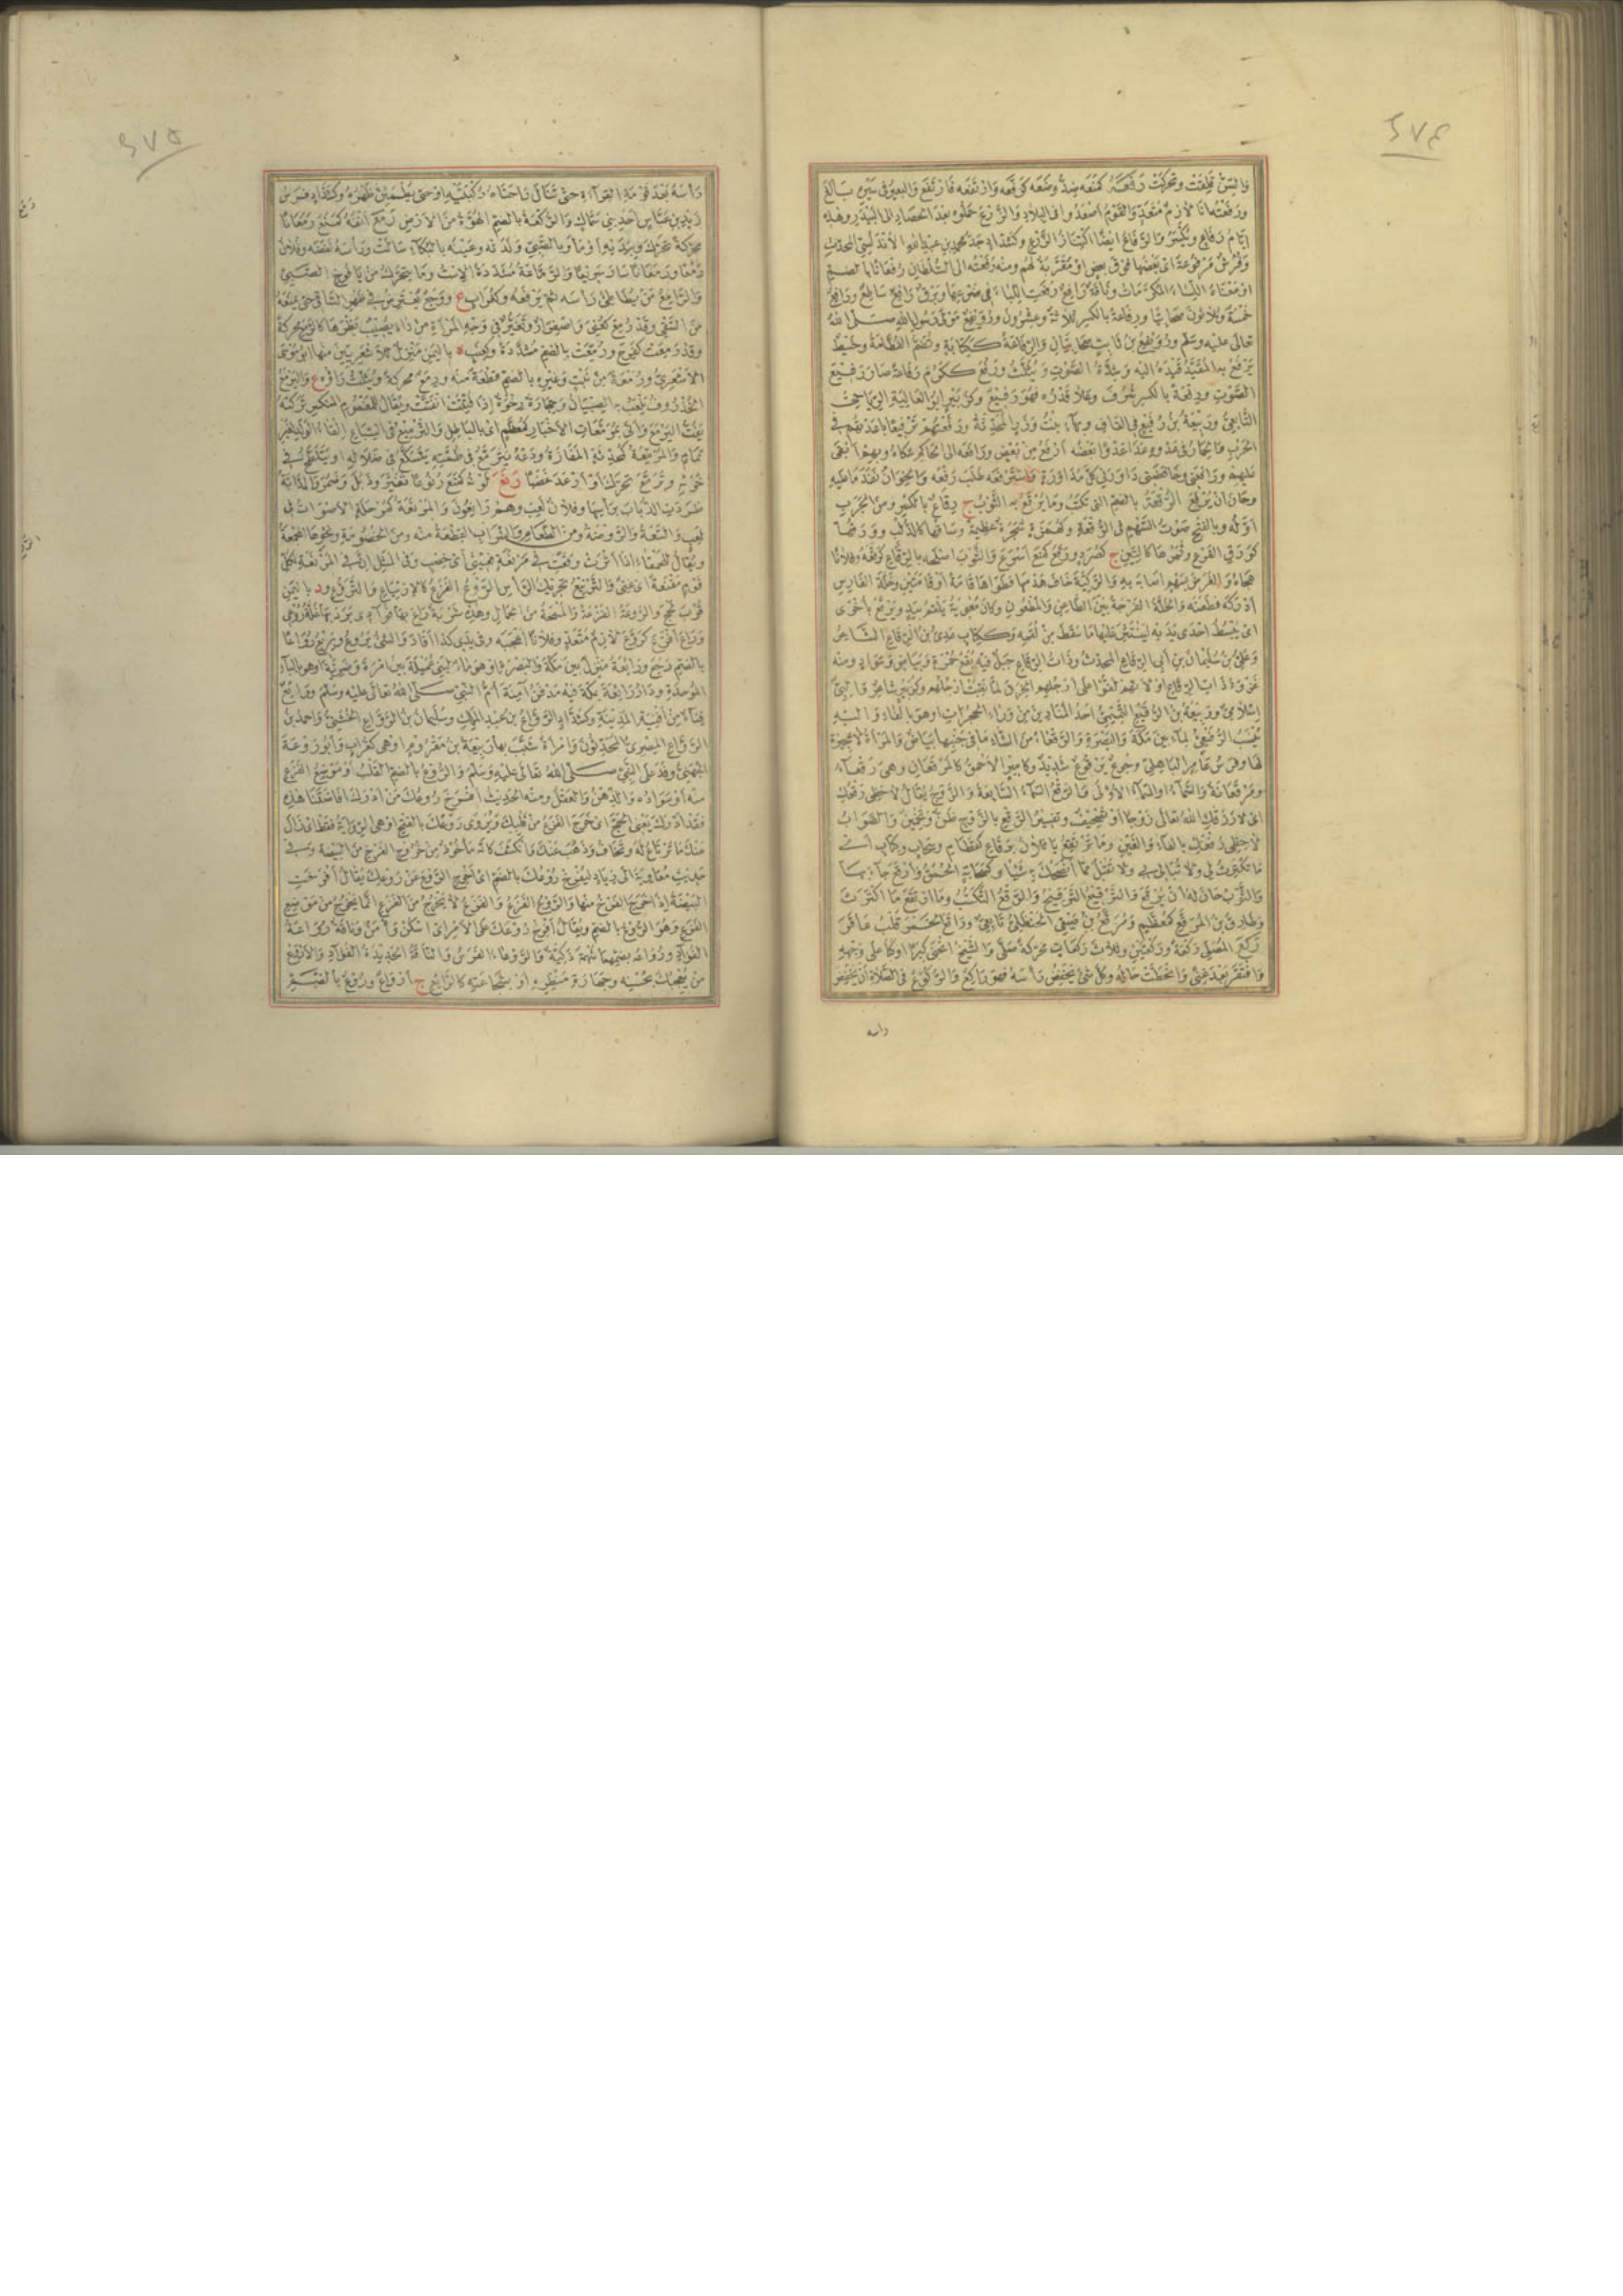 ٢٧٤
والسن قلقت وتحركت رفعه كمنعه ضد وضعه كرفعه وارتفعه فارتفع والبعير في سيره بالغ
ورفعته انا لازم متعد والقوم اصعدوا في البلاد والزرع حملوه بعد الحصاد الى البيدر وهذه
ايام رفاع ويكسر والرفاع ايضا اكتناز الزرع وكشداد جد محمد بن عبد الله الاندلسي المحدث
وفرش مرفوعة اى بعضها فوق بعض او مقربة لهم ومنه رفعته الى السلطان رفعانا بالضم
او معناه النساء المكرمات وناقة رافع رفعت اللباء في ضرعها وبرق رافع ساطع ورافع
خمسة وثلاثون صحابيا ورفاعة بالكسر ثلاثة وعشرون ورويفع مولى رسول الله صلى الله
تعالى عليه وسلم ورويفع بن ثابت صحابيان والرفاعة ككتابة وتضم العظامة وخيط
يرفع به المقيد قيده اليه وشدة الصوت ويثلث ورفع ككرم رفاعة صار رفيع
الصوت ورفعة بالكسر شرف وعلا قدره فهو رفيع وكزبير ابو العالية الرياحى
التابعى وربيعة بن رفيع في القاف وبهاء بنت وزر المحدثة ورفعتهم ترفيعا باعدتهم في
الحرب
عليهم ورافعنى وخافضنى داورنى كل مداورة واسترفعه طلب رفعه والخوان نفد ما عليه
وحان ان يرفع الرقعة بالضم التى تكتب وما يرقع به الثوب ج رقاع بالكسر ومن الجرب
اوله وبالفتح صوت السهم في الرقعة وكهمزة شجرة عظيمة وساقها كالدلب وورقها
كورق القرع وثمرها كالتين ج كصرد ورقع كمنع اسرع والثوب اصلحه بالرقاع كرقعه وفلانا
هجاه والغرض بسهم اصابه به والركية خاف هدمها فطواها قامة او قامتين وخلة الفارس
ادركه فطعنه والخلة الفرجة بين الطاعن والمطعون وكان معوية يلقم بيد ويرقع باخرى
اى يبسط احدى يديه لينتثر عليها ما سقط من لقمه وككتاب عدى بن الرقاع الشاعر
وعلى بن سليمان بن ابى الرقاع المحدث وذات الرقاع جبل فيه بقع حمرة وبياض وسواد ومنه
غزوة ذات الرقاع او لانهم لفوا على ارجلهم الخرق لما نقبت ارجلهم وكزبير شاعر والبى
اسلامى وربيعة بن الرقيع التميمى احد المنادين من وراء الحجرات او هو بالفاء واليه
نسب الرقيعى لماء بين مكة والبصرة والرقعاء من الشاء ما في جنبها بياض والمرأة لا عجيزة
لها وفرس عامر الباهلى وجوع يرقوع شديد وكامير الاحمق كالمرقعان وهى رقعاء
ومرقعانة والسماء او السماء الاولى والرقع السماء السابعة والزوج يقال لا حظى رقعك
اى لا رزقك الله تعالى زوجا او تصحيف وتفسير الرقع بالزوج ظن وتخمين والصواب
لا حظى رفغك بالفاء والغين وما ترتقع يا فلان برقاع كقطام وسحاب وكتاب اى
ما تكترث لى ولا تبالى بى ولا تقبل مما انصحك به شيئا وكسحابة الحمق وارقع جاء بها
والثوب حان له ان يرقع والترقيع الترقيح والترقع التكسب وما ارتقع ما اكترث
وطارق بن المرقع كمعظم ومرقع بن صيفى الحنظلى تابعى وراقع الخمر قلب عاقر
ركع المصلى ركعة وركعتين وثلاث ركعات محركة صلى والشيخ انحنى كبرا او كبا على وجهه
وافتقر بعد غنى وانحطت حاله وكل شئ يخفض رأسه فهو راكع والركوع في الصلاة ان يخفض
راسه
٢٧٥
رأسه بعد قومة القراءة حتى تنال راحتاه ركبتيه او حتى يطمئن ظهره وكشداد فرس
زيد بن عباس احد بنى سماك والركعة بالضم الهوة من الارض رمع انفه كمنع رمعانا
محركة تحرك وبيديه اومأ وبالصبى ولدته وعينه بالبكاء سالت ورأسه نفضه وفلان
رمعا ورمعانا سار سريعا والرماعة مشددة الاست وما يتحرك من يافوخ الصبى
والرامع من يطاطئ رأسه ثم يرفعه وكغراب ع ووجع يعترض في ظهر الساقى حتى يمنعه
من السقى وقد رمع كعنى واصفرار وتغير في وجه المرأة من داء يصيب بظرها كالرمع محركة
وقد رمعت كفرح ورمعت بالضم مشددة وكعنب ة باليمن منزل للاشعريين منها ابو موسى
الاشعرى ورمعة من نبت وغيره بالضم قطعة منه ورمع محركة ويثلث راؤه ع واليرمع
الخذروف يلعب به الصبيان وحجارة رخوة اذا فتتت انفتت ويقال للمغموم المنكسر تركته
يفت اليرمع واتى بمرمعات الاخبار كمعظم اى بالباطل والترميع في السباع القاء الولد لغير
تمام والمرمعة كمحدثة المفازة ودعه يترمع في طمته يتسكع في ضلاله او يتلطخ في
خرئه وترمع تحرك او ارعد غضبا رنع لونه كمنع رنوعا تغير وذبل وضمر والدابة
طردت الذباب برأسها وفلان لعب وهم رانعون والمرنعة كمرحلة الاصوات في
لعب والسعة والروضة ومن الطعام والشراب القطعة منه ومن الخصومة ونحوها المجمعة
ويقال للحمقاء اذا اثرت وقعت في مرنعة فعيثى اى خصب وفي المثل ان في المرنعة لكل
قوم مقنعة اى غنى والترنيع تحريك الرأس الروع الفزع كالارتياع والتروع ود باليمن
قرب لحج والروعة الفزعة والمسحة من الجمال وهذه شربة راع بها فؤادى برد بها غلة روعى
وراع افزع كروع لازم متعد وفلانا اعجبه وفي يدى كذا افاد والشئ يروع ويريع رواعا
بالضم رجع ورائعة منزل بين مكة والبصرة او هو ماء لبنى عميلة بين امرة وضرية او هو بالباء
الموحدة ودار رائعة بمكة فيه مدفن آمنة ام النبى صلى الله تعالى عليه وسلم ورائع
فناء من افنية المدينة وكشداد الرواع بن عبد الملك وسليمان بن الرواع الخشنى واحمد بن
الرواع المصرى المحدثون وامرأة شبب بها ربيعة بن مقروم او هى كغراب وابو روعة
الجهنى وفد على النبى صلى الله تعالى عليه وسلم والروع بالضم القلب او موضع الفزع
منه او سواده والذهن والعقل ومنه الحديث افرخ روعك من ادرك افاضتنا هذه
فقد ادرك يعنى الحج اى خرج الفزع من قلبك ويروى روعك بالفتح او هى الرواية فقط اى زال
عنك ما ترتاع له وتخاف وذهب عنك وانكشف كانه مأخوذ من خروج الفرخ من البيضة وفي
حديث معاوية الى زياد ليفرخ روعك بالضم اى اخرج الروع عن روعك يقال افرخت
البيضة اذا خرج الفرخ منها والروع الفزع والفزع لا يخرج من الفزع انما يخرج من موضع
الفزع وهو الروع بالضم ويقال افرخ روعك على الامر اى اسكن وأمن وناقة رواعة
الفؤاد ورواعه بضمهما شهمة ذكية والروعاء الفرس والناقة الحديدة الفؤاد والاروع
من يعجبك بحسنه وجهارة منظره او بشجاعته كالرائع ج ارواع وروع بالضم